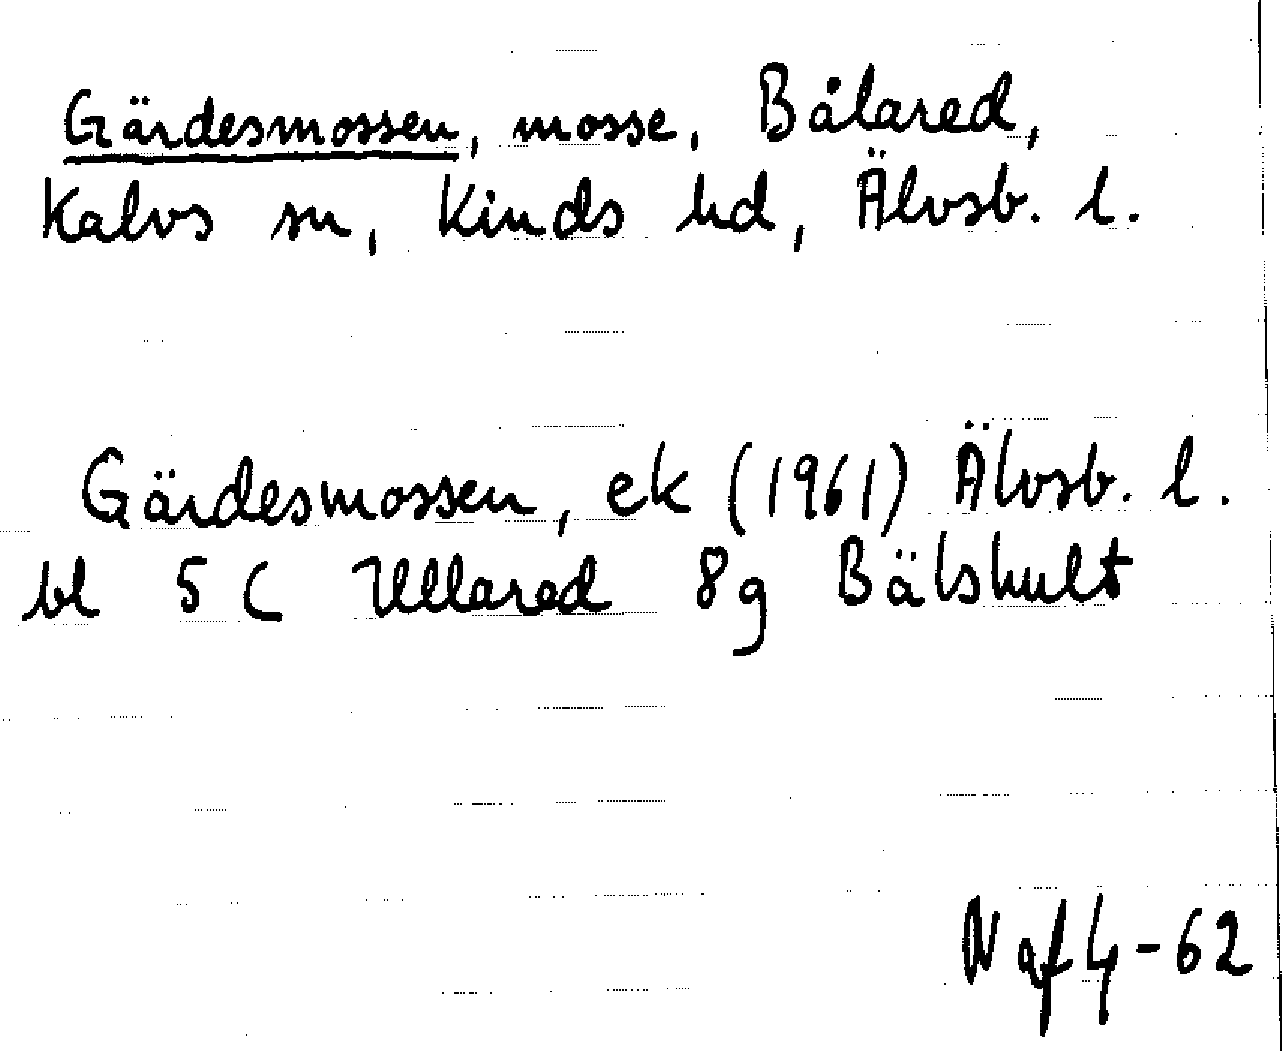 Gärdesmossen, mosse, Bålared,
Kalvs sn, Kinds hd, Älvsb. l.
Gärdesmossen, ek (1961) Älvsb. l.
bl 5 C Ullared 8g Bälshult
N af 4-62